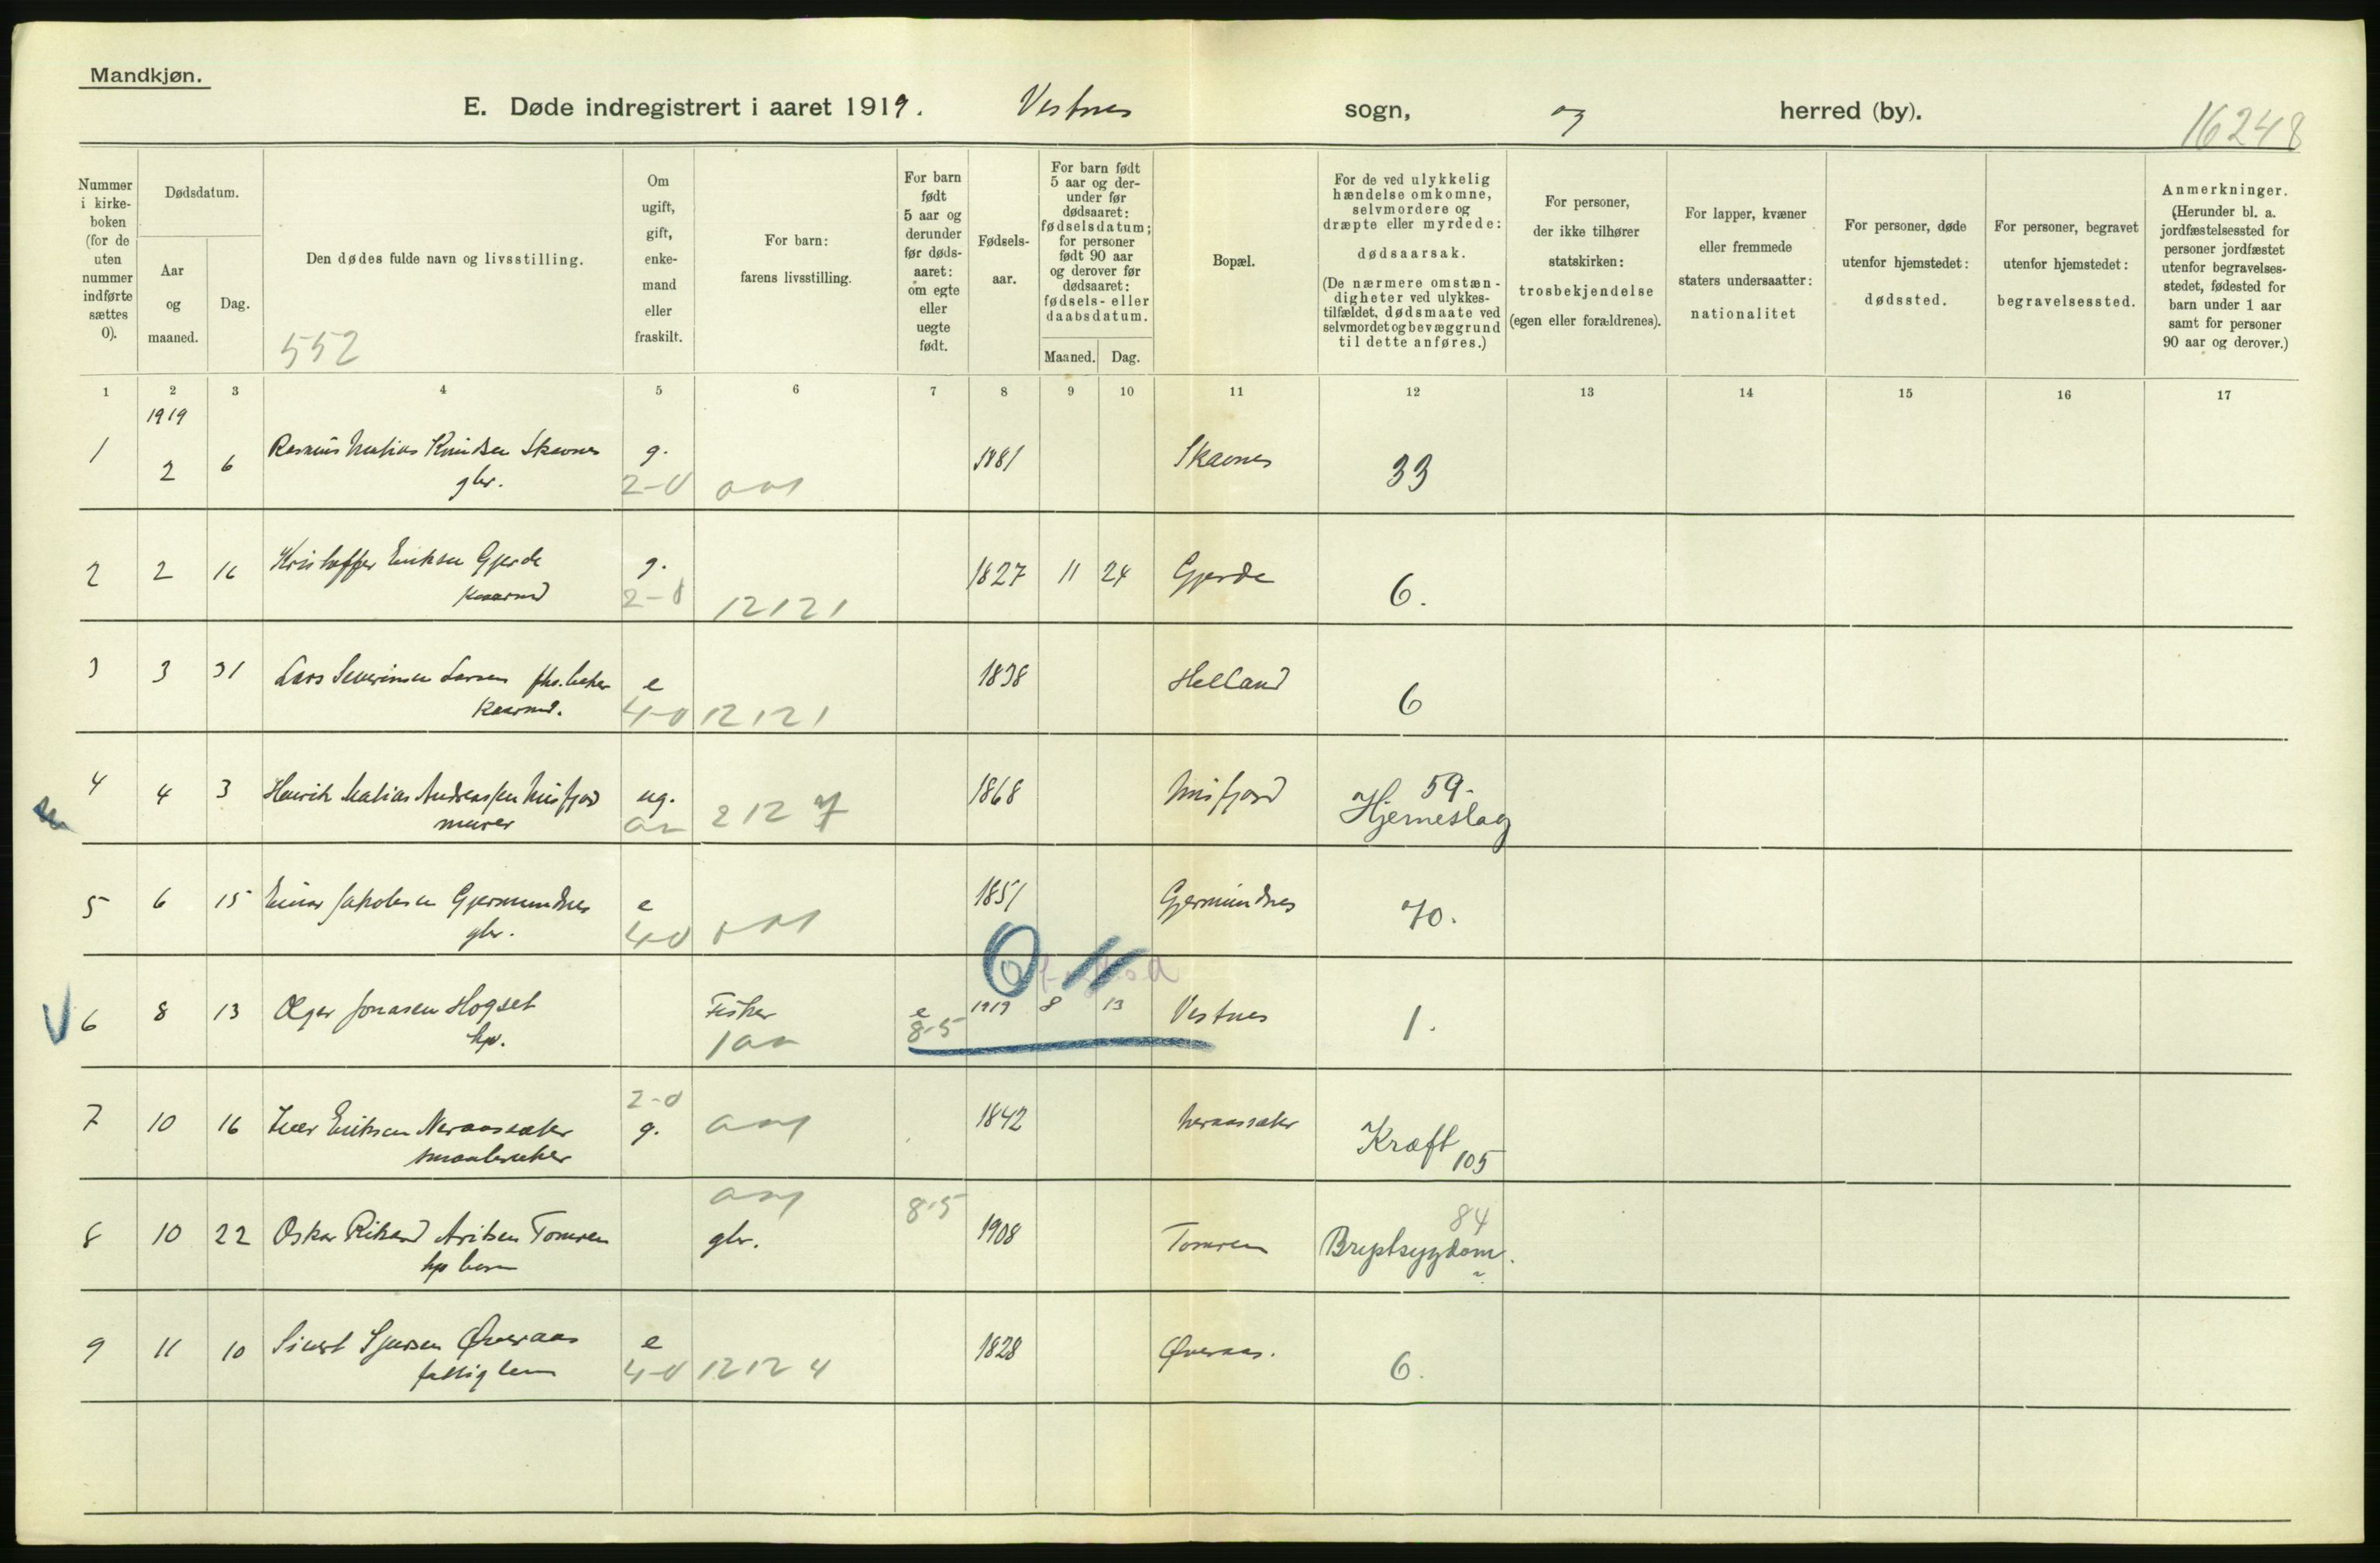 Mandkjøn.
E. Døde indregistrert i aaret 1919. Vestnes sogn, og herred (by).
16248
Nummer i kirke-boken (for de uten nummer indførte sættes 0).
Dødsdatum.
Aar og maaned.
Dag.
Den dødes fulde navn og livsstilling.
552
Om ugift, gift, enke-mand eller fraskilt.
For barn: farens livsstilling.
For barn født 5 aar og derunder før døds-aaret: om egte eller uegte født.
Fødsels-aar.
For barn født 5 aar og der-under før dødsaaret: fødselsdatum; for personer født 90 aar og derover før dødsaaret: fødsels- eller daabsdatum.
Maaned. Dag.
Bopæl.
For de ved ulykkelig hændelse omkomne, selvmordere og dræpte eller myrdede: dødsaarsak.
(De nærmere omstæn-digheter ved ulykkes-tilfældet, dødsmaate ved selvmordet og bevæggrund til dette anføres.)
For personer, der ikke tilhører statskirken: trosbekjendelse (egen eller forældrenes).
For lapper, kvæner eller fremmede staters undersaatter: nationalitet
For personer, døde utenfor hjemstedet: dødssted.
For personer, begravet utenfor hjemstedet: begravelsessted.
Anmerkninger. (Herunder bl. a. jordfæstelsessted for personer jordfæstet utenfor begravelses-stedet, fødested for barn under 1 aar samt for personer 90 aar og derover.)
1 2 3 4 5 6 7 8 9 10 11 12 13 14 15 16 17
1919
1 2 6 Rasmus Matias Knudsen Skavnes g. 1881 Skavnes 33
gbr. 2-0
2 2 16 Kristoffer Eriksen Gjerde g. 1827 11 24 Gjerde 6.
kaarmd 2-0 12121
3 3 31 Lars Severinsen Larsen e 1838 Helland 6
kaarmd. 4-0 12121
4 4 3 Henrik Matias Andreassen Misfjord ug. 1868 Misfjord 59.
murer 2127 Hjerneslag
5 6 15 Einar Jakobsen Gjermundnes e 1851 Gjermundnes 70.
gbr. 4-0
6 8 13 Olger Jonasen Hogset Fisker e 1919 8 13 Vestnes 1.
8-5
2-0
7 10 16 Iver Eriksen Neraassæter g. 1842 Neraassæter Kræft 105
smaabruker
8-5 84
8 10 22 Oskar Rikard Aritsen Tomren gbr. 1908 Tomren Brystsygdom.
9 11 10 Sivert Sjursen Øveraas e 1828 Øveraas. 6.
fattiglem 4-0 12124